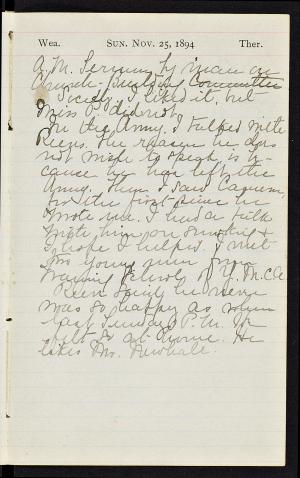 Wea. SUN. NOV. 25, 1894 Ther.
A. M. Sermon by man on
Church Building Committee
Society. I liked it, but
Miss P. did not.
In the Army. I talked with
Keeps. The reason he does
not wish to speak is be-
cause he has left the
Army. Then I saw
for the first since he
wrote me. I had a talk
with him on smoking &
I hope I helped. I met
two young men from
Training School of Y.M.C.A.
Keen said he never
was so happy as when
last Sunday P.M. He
felt so at home. He
likes Mr. Newhall.